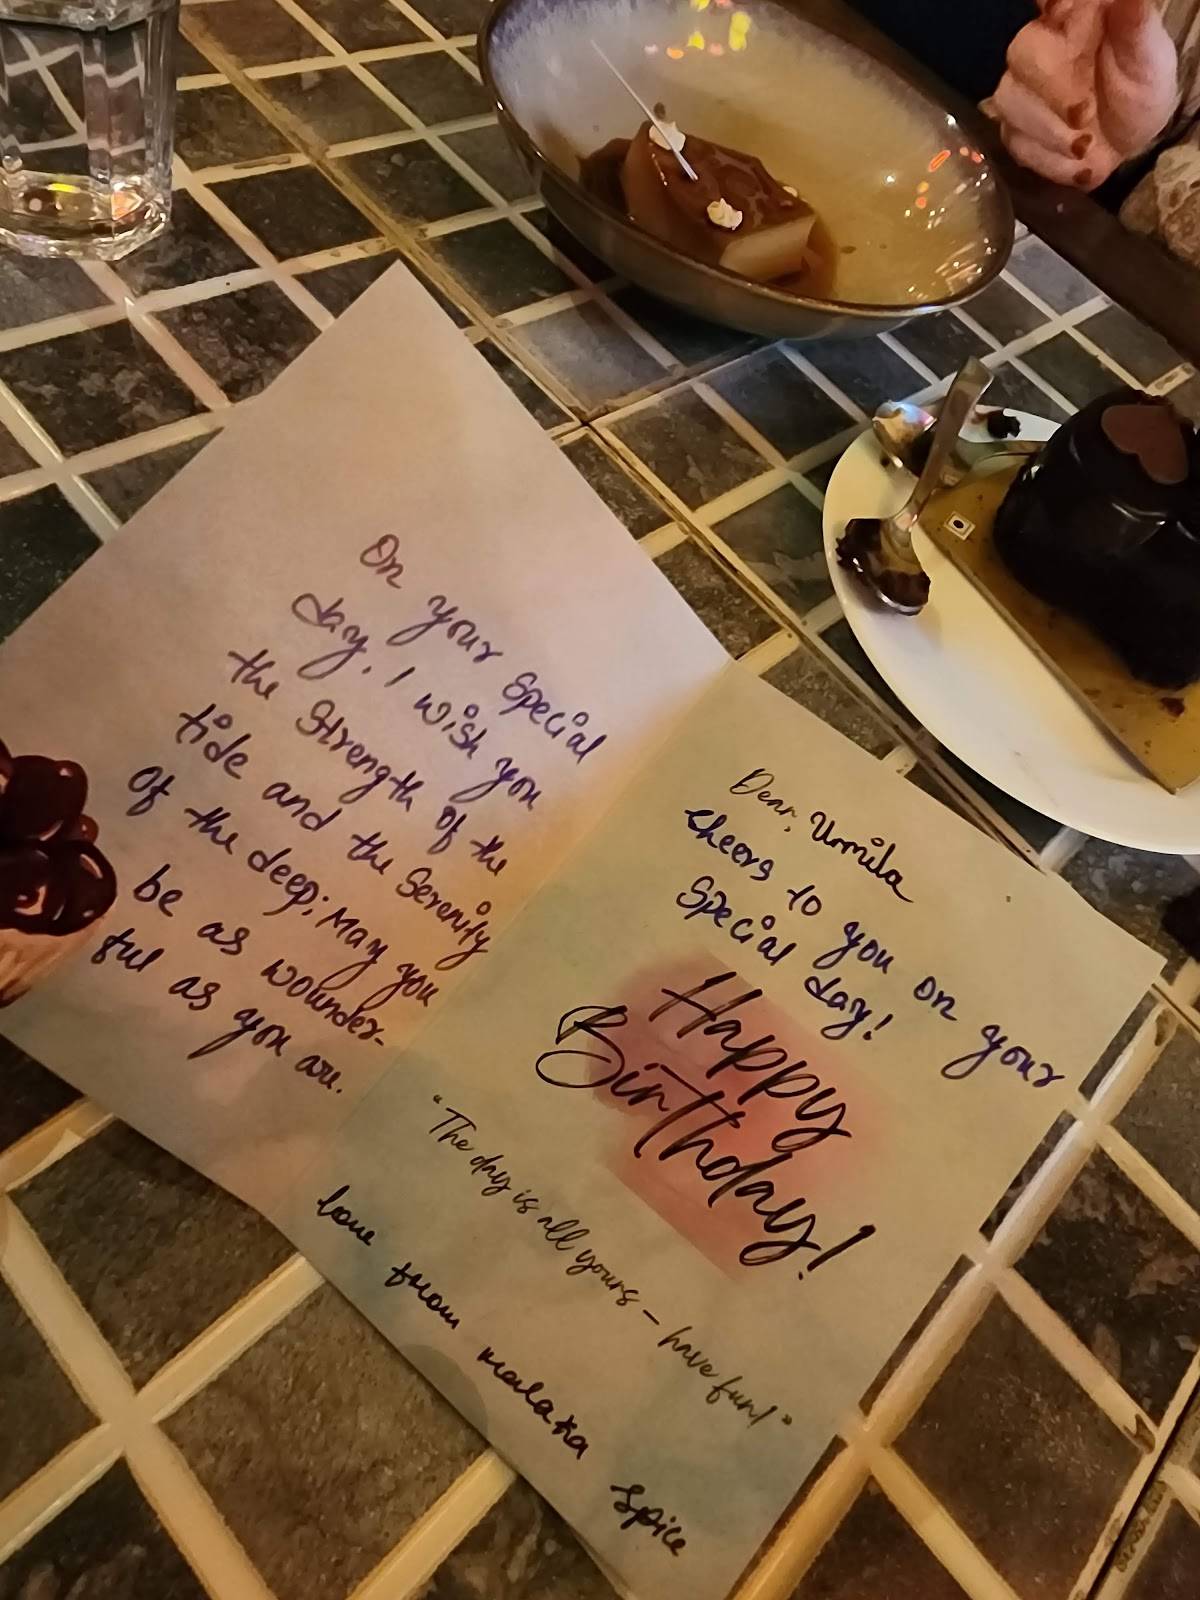 On your special
day, I wish you
the Strength of the
tide and the Serenity
of the deep; May you
be as wounder-
ful as you are.
Dear, Urmila
Cheers to you on your
Special day!
Happy
Birthday!
"The day is all yours – have fun!"
love from malaka spice